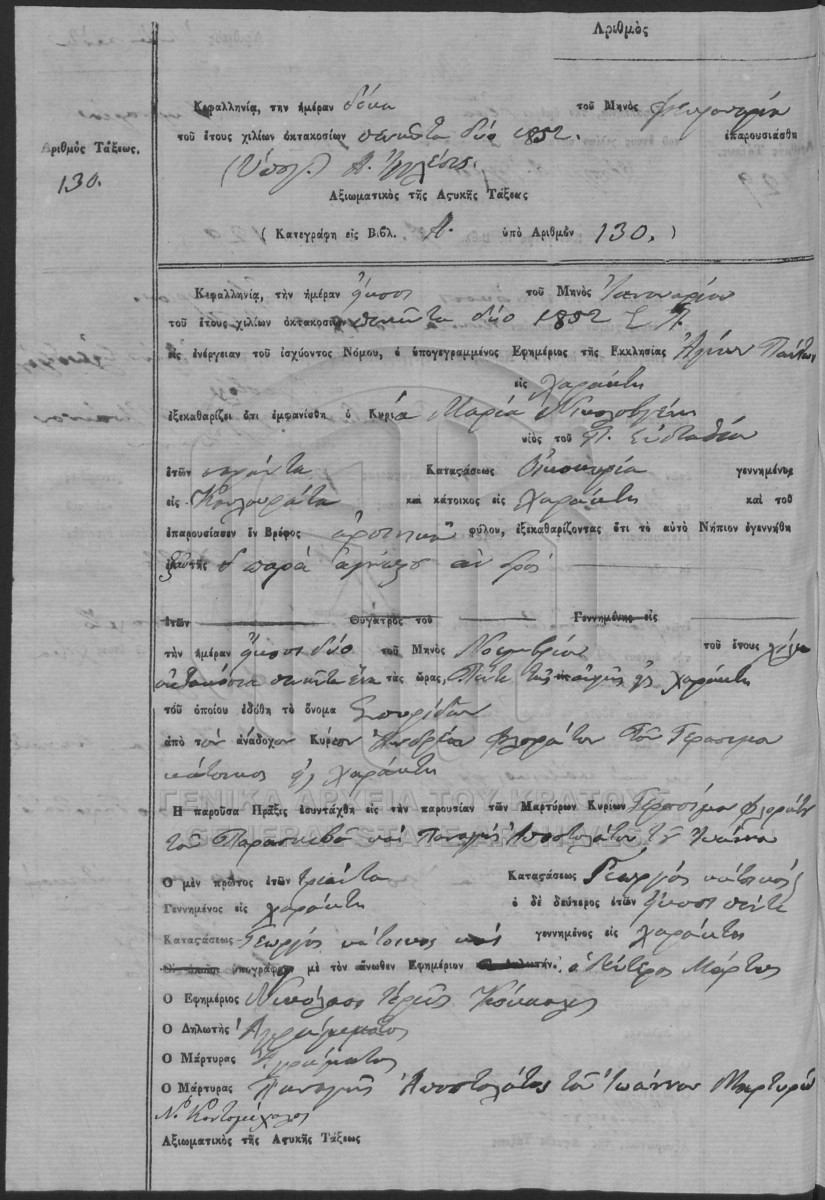 Αριθμὸς
Κεφαλληνίᾳ, τὴν ἡμέραν δέκα τοῦ Μηνὸς Φευρουαρίου
τοῦ ἔτους χιλίων ὀκτακοσίων πενῆντα δύο 1852. ἐπαρουσιάσθη
Αριθμὸς Τάξεως.
130.
(Ὑπογ.) Α.
Αξιωματικὸς τῆς Αστυκῆς Τάξεως
( Κατεγράφη εἰς Βιβλ. Α. ὑπὸ Αριθμὸν 130. )
Κεφαλληνίᾳ, τὴν ἡμέραν ἤκοσι τοῦ Μηνὸς Ἰαννουαρίου
τοῦ ἔτους χιλίων ὀκτακοσίων πενῆντα δύο 1852 Ε.Π.
εἰς ἐνέργειαν τοῦ ἰσχύοντος Νόμου, ὁ ὑπογεγραμμένος Ἐφημέριος τῆς Εκκλησίας Ἁγίων Πάντων
εἰς Χαράκτη
ἐξεκαθαρίζει ὅτι ἐμφανίσθη ὁ Κυρία Μαρία
υἱὸς τοῦ Π. Εὐσταθίου
ἐτῶν σαράντα Καταστάσεως Οἰκοκυρία γεννημένος
εἰς Κουλουράτα καὶ κάτοικος εἰς Χαράκτη καὶ τοῦ
ἐπαρουσίασεν ἓν Βρέφος ἀρσενικοῦ φύλου, ἐξεκαθαρίζοντας ὅτι τὸ αὐτὸ Νήπιον ἐγεννήθη
ἐξ αὐτῆς παρὰ ἀγνώστου ἀνδρός
ἐτῶν Θυγατρὸς τοῦ Γεννημένης εἰς
τὴν ἡμέραν ἤκοσι δύο τοῦ Μηνὸς Νοεμβρίου τοῦ ἔτους χίλια
ὀκτακόσια πενῆντα ἕνα τὰς ὥρας, Πέντε τῆς αὐγῆς εἰς Χαράκτη
τοῦ ὁποίου ἐδόθη τὸ ὄνομα Σπυρίδων
ἀπὸ τὸν ἀνάδοχον Κύριον Ἀνδρέα Φλωράτον τοῦ Γεράσιμου
κάτοικος εἰς Χαράκτη
ΓΕΝΙΚΑ ΑΡΧΕΙΑ ΤΟΥ ΚΡΑΤΟΥΣ
Η παροῦσα Πρᾶξις ἐσυντάχθη εἰς τὴν παρουσίαν τῶν Μαρτύρων Κυρίων Γεράσιμου Φλωράτου
GENERAL STATE ARCHIVES
τοῦ Παρασκευᾶ καὶ Παναγῆς Ἀποστολάτου τοῦ Ἰωάννου
Ο μὲν πρῶτος ἐτῶν τριάντα Καταστάσεως Γεωργός κάτοικος
Γεννημένος εἰς Χαράκτη ὁ δὲ δεύτερος ἐτῶν ἤκοσι πέντε
Καταστάσεως Γεωργός κάτοικος καὶ γεννημένος εἰς Χαράκτη
Οἱ ὁποῖοι ὑπογράφει μὲ τὸν ἄνωθεν Εφημέριον ὁ Δεύτερος Μάρτυς
Ο Εφημέριος Νικόλαος Ἱερεὺς
Ο Δηλωτὴς Ἀγράμματος
Ο Μάρτυρας Ἀγράμματος
Ο Μάρτυρας Παναγῆς Ἀποστολάτος τοῦ Ἰωάννου Μαρτυρῶ
Ν. Κοντομίχαλος
Αξιωματικὸς τῆς Αστυκῆς Τάξεως